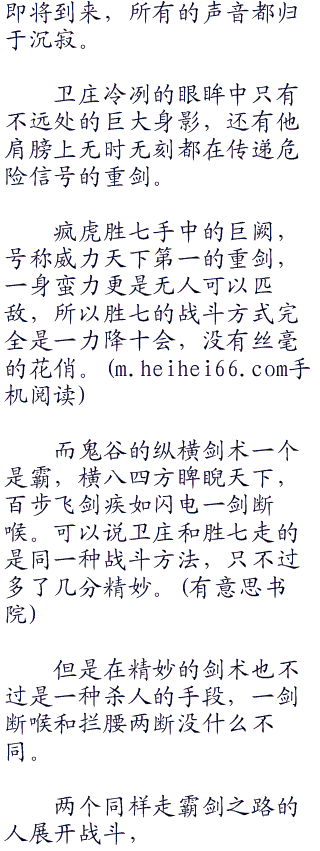 即将到来，所有的声音都归
于沉寂。
卫庄冷冽的眼眸中只有
不远处的巨大身影，还有他
肩膀上无时无刻都在传递危
险信号的重剑。
疯虎胜七手中的巨阙，
号称威力天下第一的重剑，
一身蛮力更是无人可以匹
敌，所以胜七的战斗方式完
全是一力降十会，没有丝毫
的花俏。(m.heihei66.com手
机阅读)
而鬼谷的纵横剑术一个
是霸，横八四方睥睨天下，
百步飞剑疾如闪电一剑断
喉。可以说卫庄和胜七走的
是同一种战斗方法，只不过
多了几分精妙。(有意思书
院)
但是在精妙的剑术也不
过是一种杀人的手段，一剑
断喉和拦腰两断没什么不
同。
两个同样走霸剑之路的
人展开战斗，